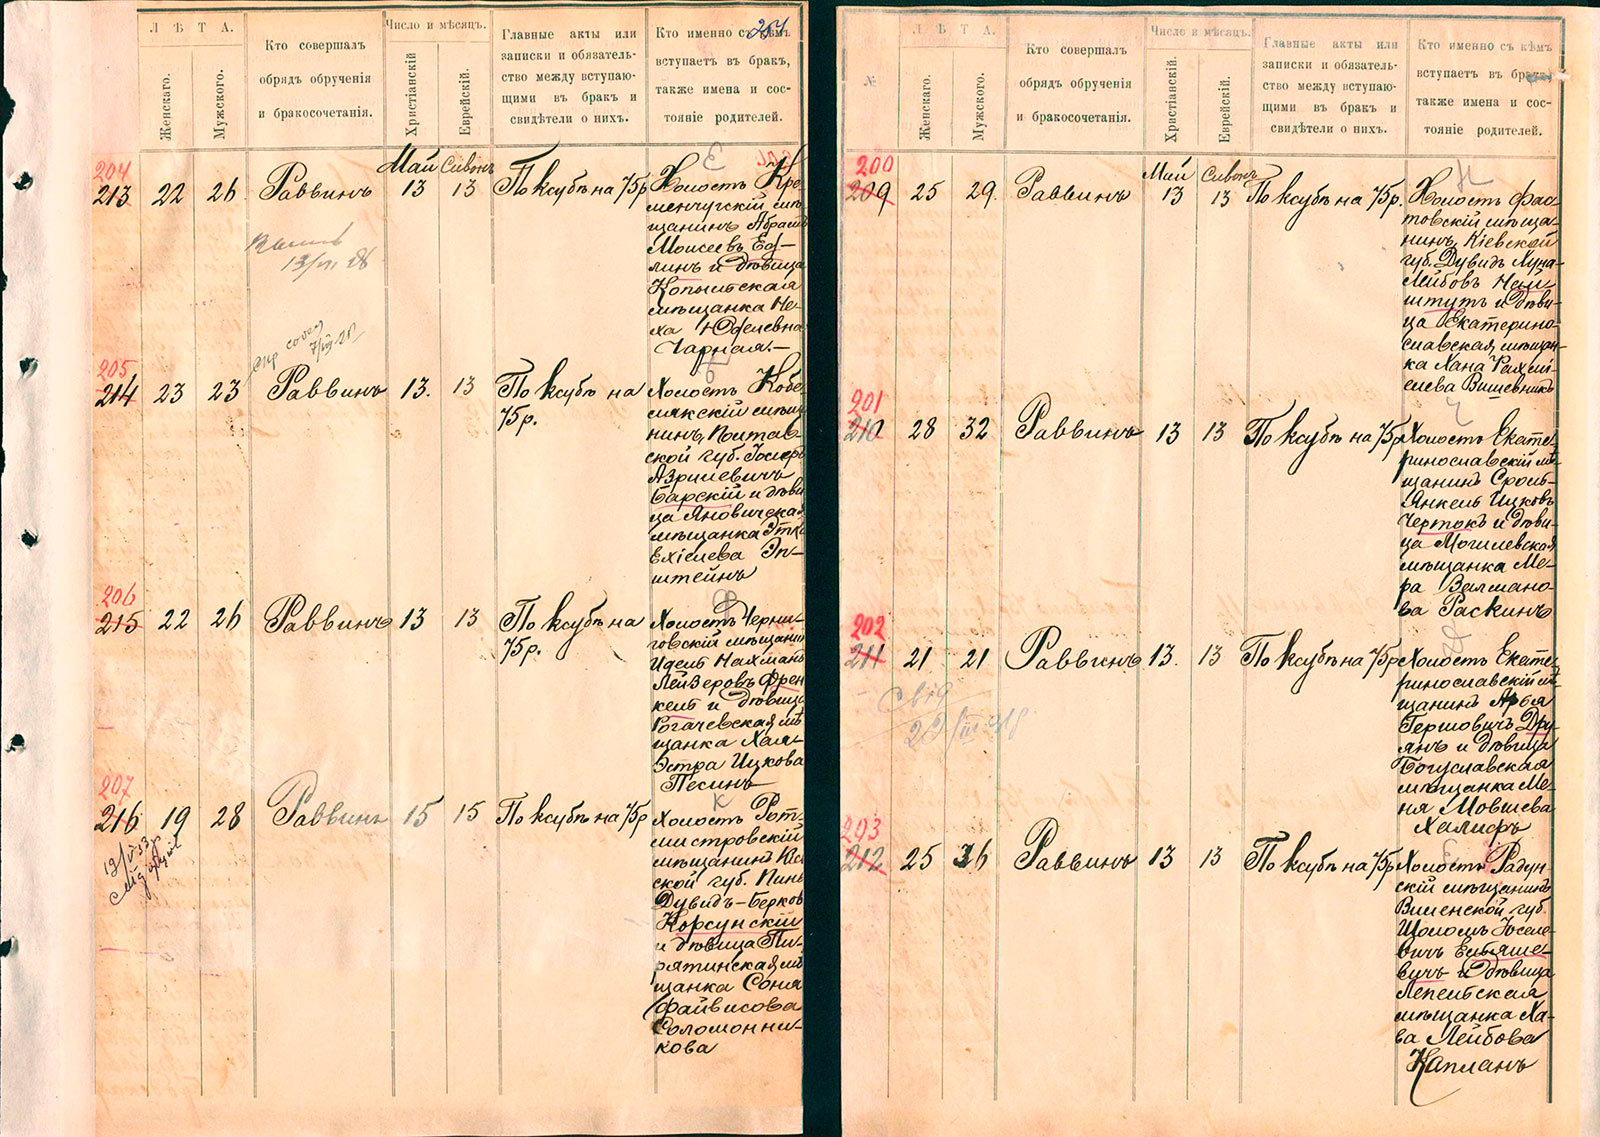 254
Л Ѣ Т А.
Женскаго.
Мужского.
Кто совершалъ
обрядъ обрученія
и бракосочетанія.
Число и мѣсяцъ.
Христіанскій
Еврейскій.
Главные акты или
записки и обязатель-
ство между вступаю-
щими въ бракъ и
свидѣтели о нихъ.
Кто именно съ кѣмъ
вступаетъ въ бракъ,
также имена и сос-
тояніе родителей.
Май Сивонъ
204
213 22 26 Раввинъ 13 13 По ксубѣ на 75р
Холостъ Кре-
менчугскій мѣ-
щанинъ Абрамъ
Моисеевъ Еф-
линъ и дѣвица
Копыстская
мѣщанка Не-
ха Юделевна
Чарная.—
13/VI 28
7/VIII-28
205
214 23 23 Раввинъ 13. 13 По ксубѣ на
75р.
Холостъ Кобе-
лякскій мѣща-
нинъ, Полтав-
ской губ. Іосифъ
Азрилевичъ
Барскій и дѣви-
ца Яновичская
мѣщанка Этка
Ехіелева Эп-
штейнъ
206
215 22 26 Раввинъ 13 13 По ксубѣ на
75р.
Холостъ Черни-
говскій мѣщанинъ
Идель Нахманъ
Лейзеровъ Френ-
кель и дѣвица
Рогачевская мѣ-
щанка Хая-
Эстра Ицкова
Песинъ
207
216 19 28 Раввинъ 15 15 По ксубѣ на 75р
К
Холостъ Рот-
мистровскій
мѣщанинъ Кіев-
ской губ. Пинь
Дувидъ-Берковъ
Корсунскій
и дѣвица Пи-
рятинская мѣ-
щанка Соня
Файвисова
Соломонни-
кова
Л Ѣ Т А.
Женскаго.
Мужского.
Кто совершалъ
обрядъ обрученія
и бракосочетанія.
Число и мѣсяцъ.
Христіанскій
Еврейскій.
Главные акты или
записки и обязатель-
ство между вступаю-
щими въ бракъ и
свидѣтели о нихъ.
Кто именно съ кѣмъ
вступаетъ въ бракъ,
также имена и сос-
тояніе родителей.
Май Сивонъ
200
209 25 29. Раввинъ 13 13 По ксубѣ на 75р.
Н
Холостъ Фас-
товскій мѣща-
нинъ, Кіевской
губ. Дувидъ Нуна-
Лейбовъ Ней-
штутъ и дѣви-
ца Екатерино-
славская мѣщан-
ка Хана Рахми-
елева Вишевникъ
201
210 28 32 Раввинъ 13 13 По ксубѣ на 75р
Ч
Холостъ Екате-
ринославскій мѣ-
щанинъ Сроль-
Янкель Ицковъ
Чертокъ и дѣви-
ца Могилевская
мѣщанка Ме-
ра Залмано-
ва Раскинъ
202
211 21 21 Раввинъ 13. 13 По ксубѣ на 75р
Д
Холостъ Екате-
ринославскій мѣ-
щанинъ Арья
Гершовичъ Дру-
янъ и дѣвица
Богуславская
мѣщанка Ме-
ня Мовшева
Халифъ
203
212 25 36 Раввинъ 13 13 По ксубѣ на 75р
Холостъ Радун-
скій мѣщанинъ
Виленской губ.
Шоломъ Іоселе-
вичъ Ельяше-
вичъ и дѣвица
Лепельская
мѣщанка Ха-
ва Лейбова
Капланъ